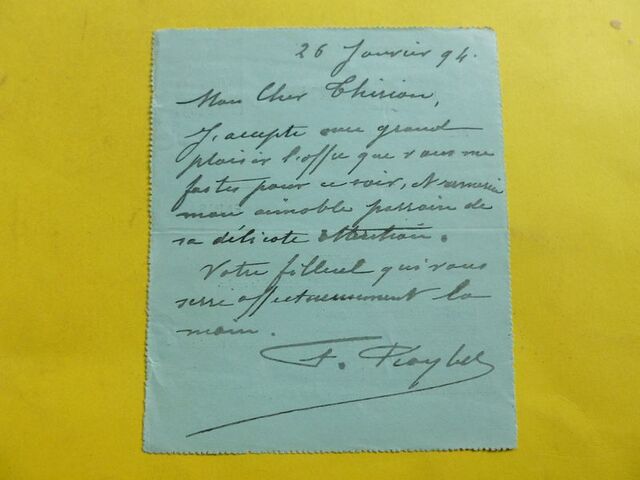 26 Janvier 94.
Mon Cher Thirion,
J'accepte avec grand
plaisir l'offre que vous me
faites pour ce soir, et remercie
mon aimable parrain de
sa délicate attention.
Votre filleul qui vous
serre affectueusement la
main.
F. Roybet